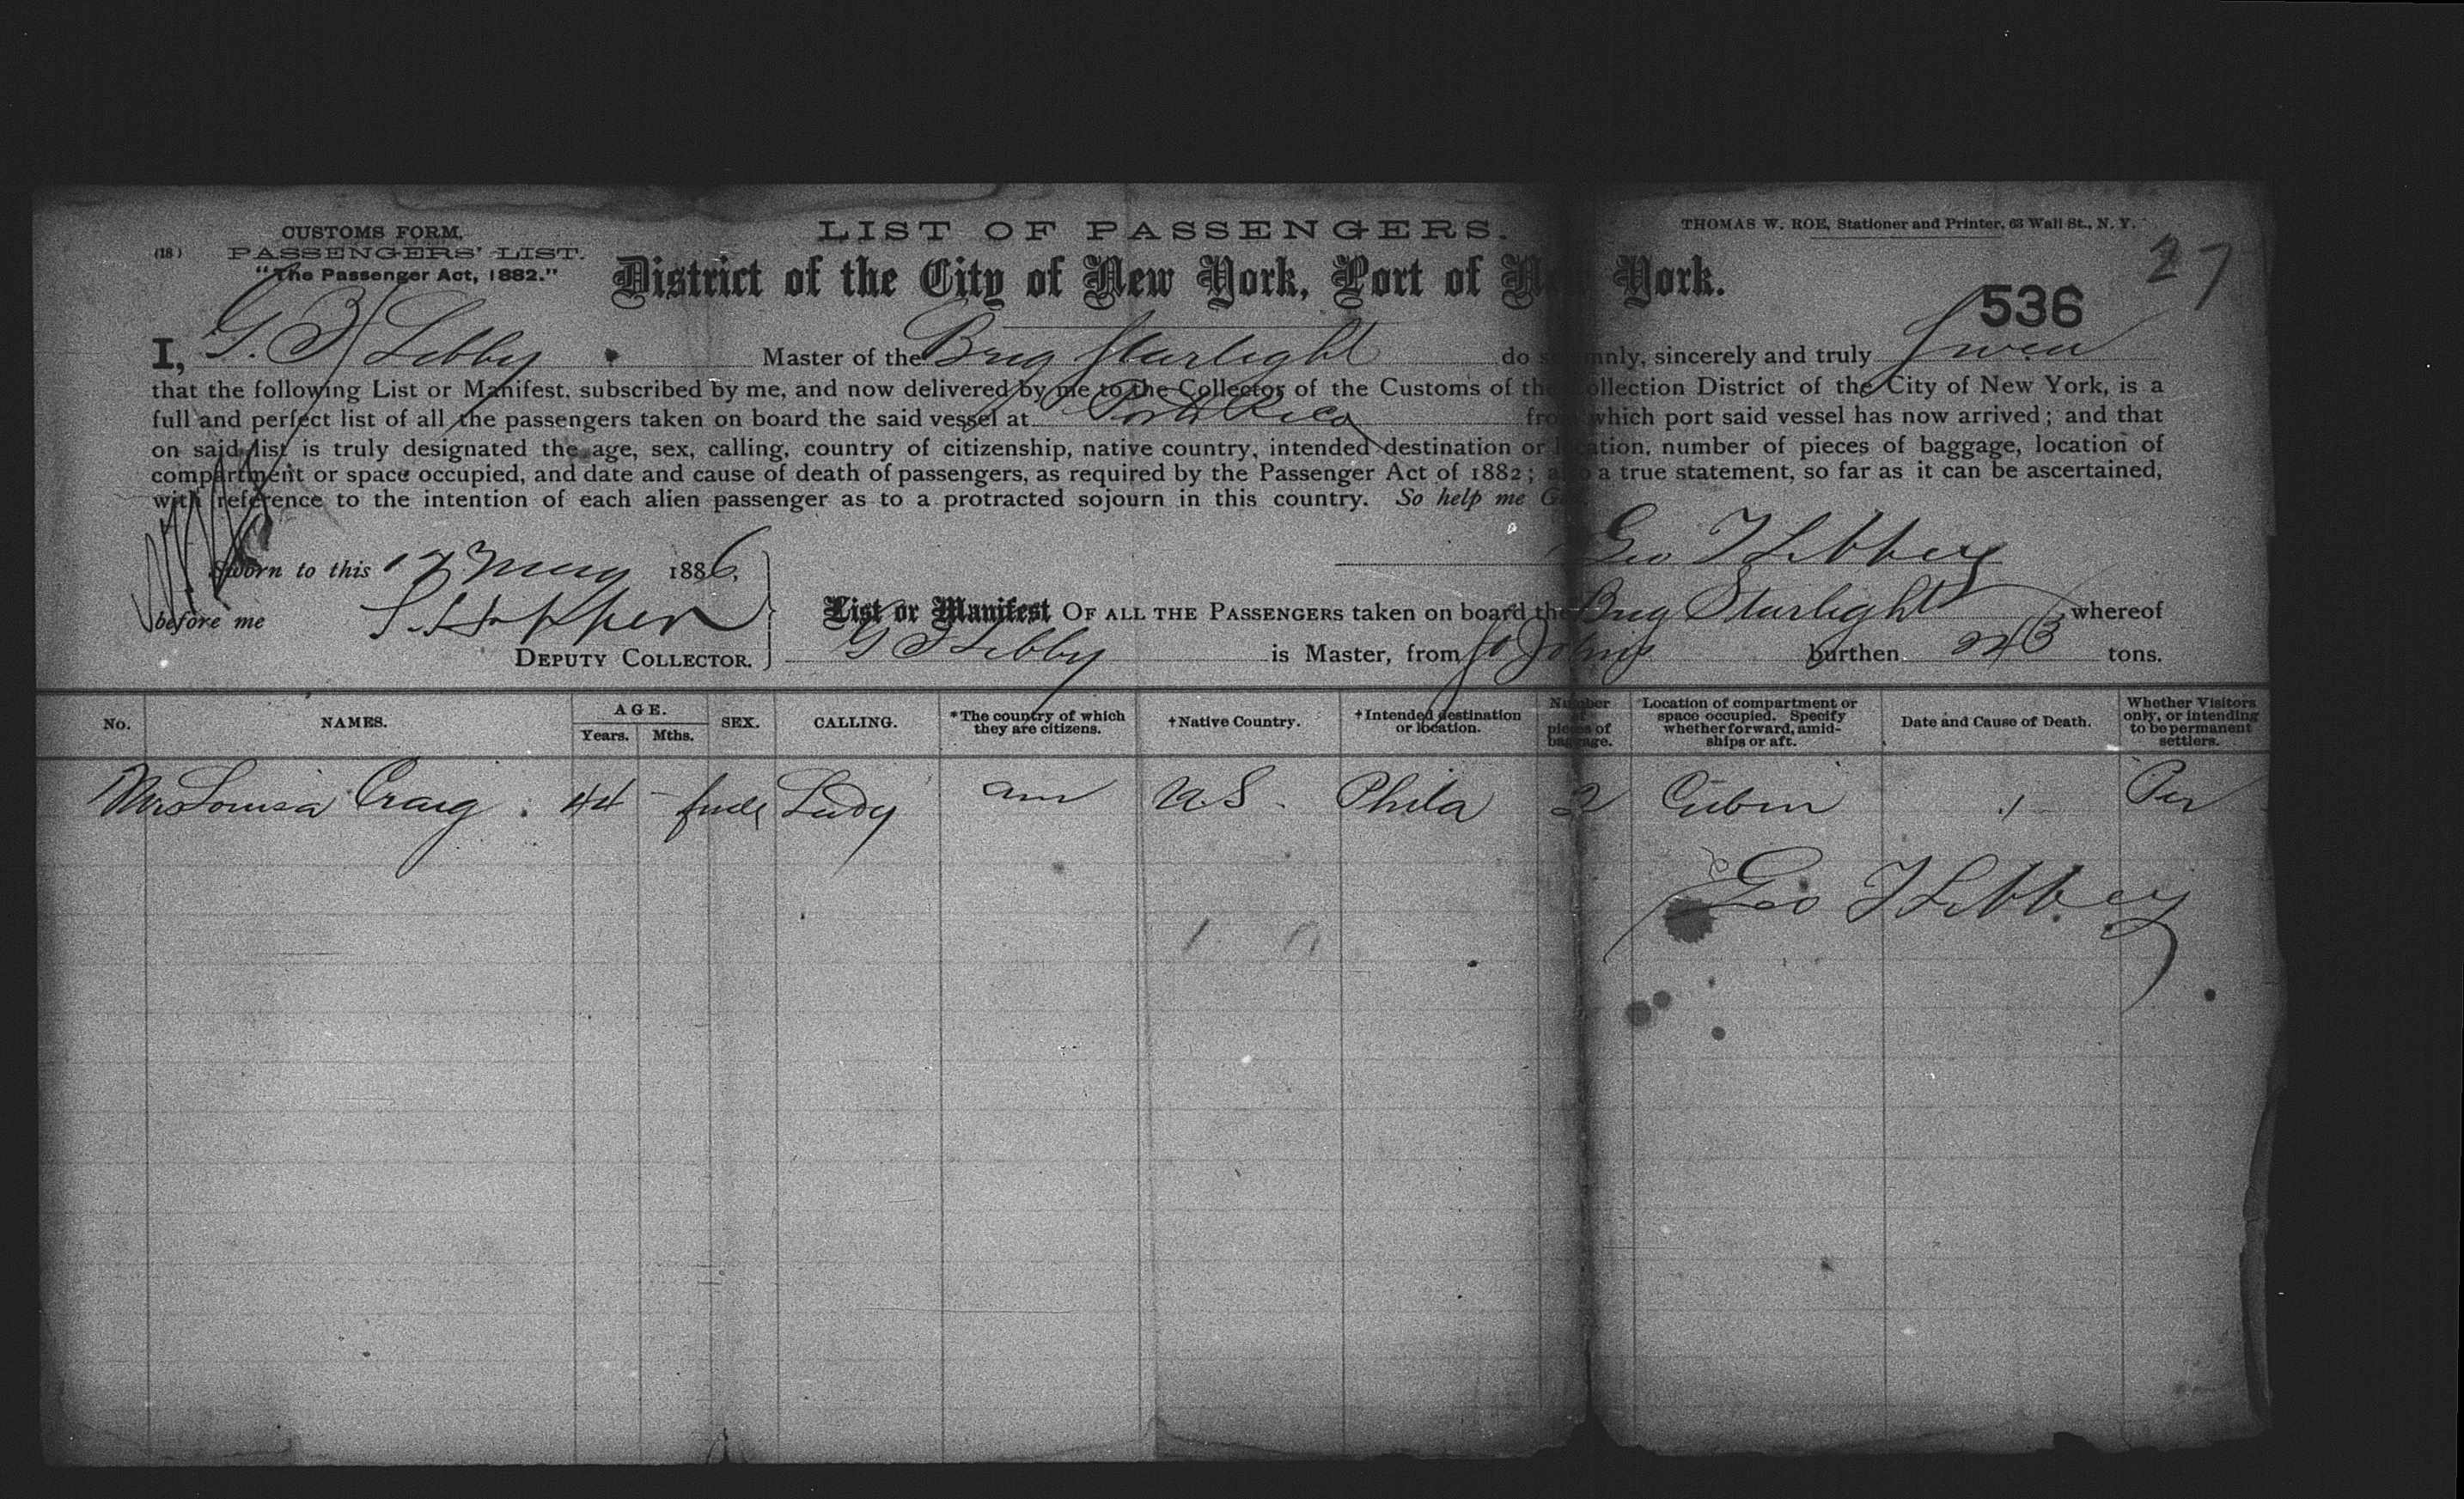 CUSTOMS FORM.
(18) PASSENGERS' LIST.
"The Passenger Act, 1882."
LIST OF PASSENGERS.
THOMAS W. ROE, Stationer and Printer, 63 Wall St., N. Y.
27
District of the City of New York, Port of New York.
536
I, G. F. Libby Master of the Brig Starlight do solemnly, sincerely and truly Swear
that the following List or Manifest, subscribed by me, and now delivered by me to the Collector of the Customs of the Collection District of the City of New York, is a
full and perfect list of all the passengers taken on board the said vessel at Porto Rico from which port said vessel has now arrived; and that
on said list is truly designated the age, sex, calling, country of citizenship, native country, intended destination or location, number of pieces of baggage, location of
compartment or space occupied, and date and cause of death of passengers, as required by the Passenger Act of 1882; also a true statement, so far as it can be ascertained,
with reference to the intention of each alien passenger as to a protracted sojourn in this country. So help me God.
Geo F Libby
Sworn to this 17 May 1886,
before me
DEPUTY COLLECTOR.
List or Manifest OF ALL THE PASSENGERS taken on board the Brig Starlight whereof
G F Libby is Master, from St Johns burthen 243 tons.
No. NAMES. AGE. Years. Mths. SEX. CALLING. *The country of which they are citizens. †Native Country. †Intended destination or location. Number of pieces of baggage. Location of compartment or space occupied. Specify whether forward, amidships or aft. Date and Cause of Death. Whether Visitors only, or intending to be permanent settlers.
Mrs Louisa Craig 44 - Lady am U.S. Phila 2 Cabin Per
Geo F Libby